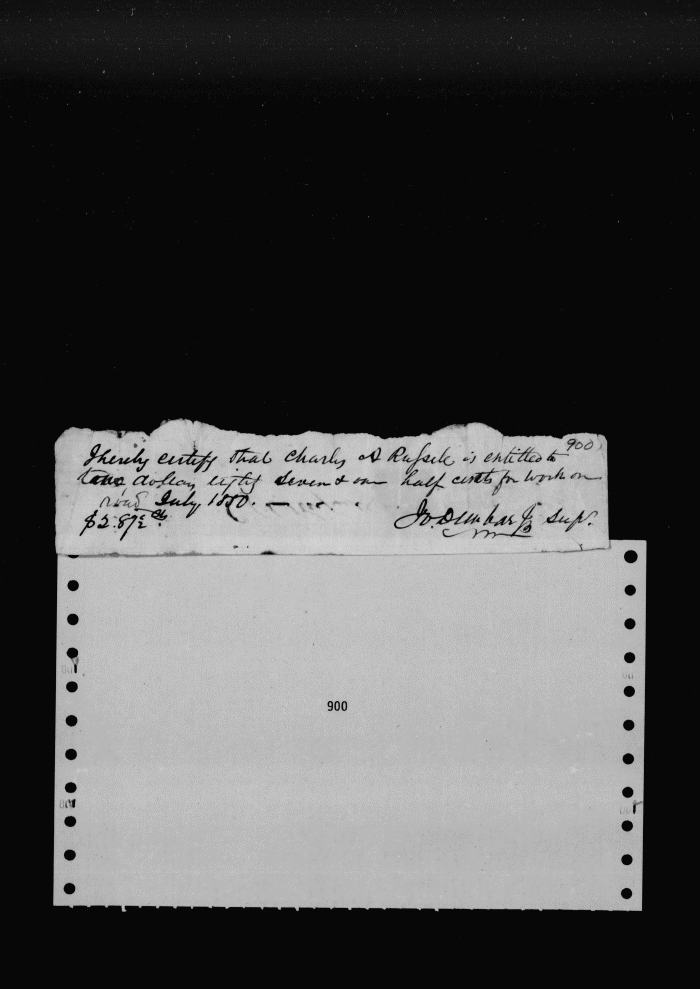 900
I hereby certify that Charles A Russele is entitled to
two dollars eighty seven & one half cents for work on
road July 1850.
$2.87½ cts
Jo. Dunbar Jr Sup.
900